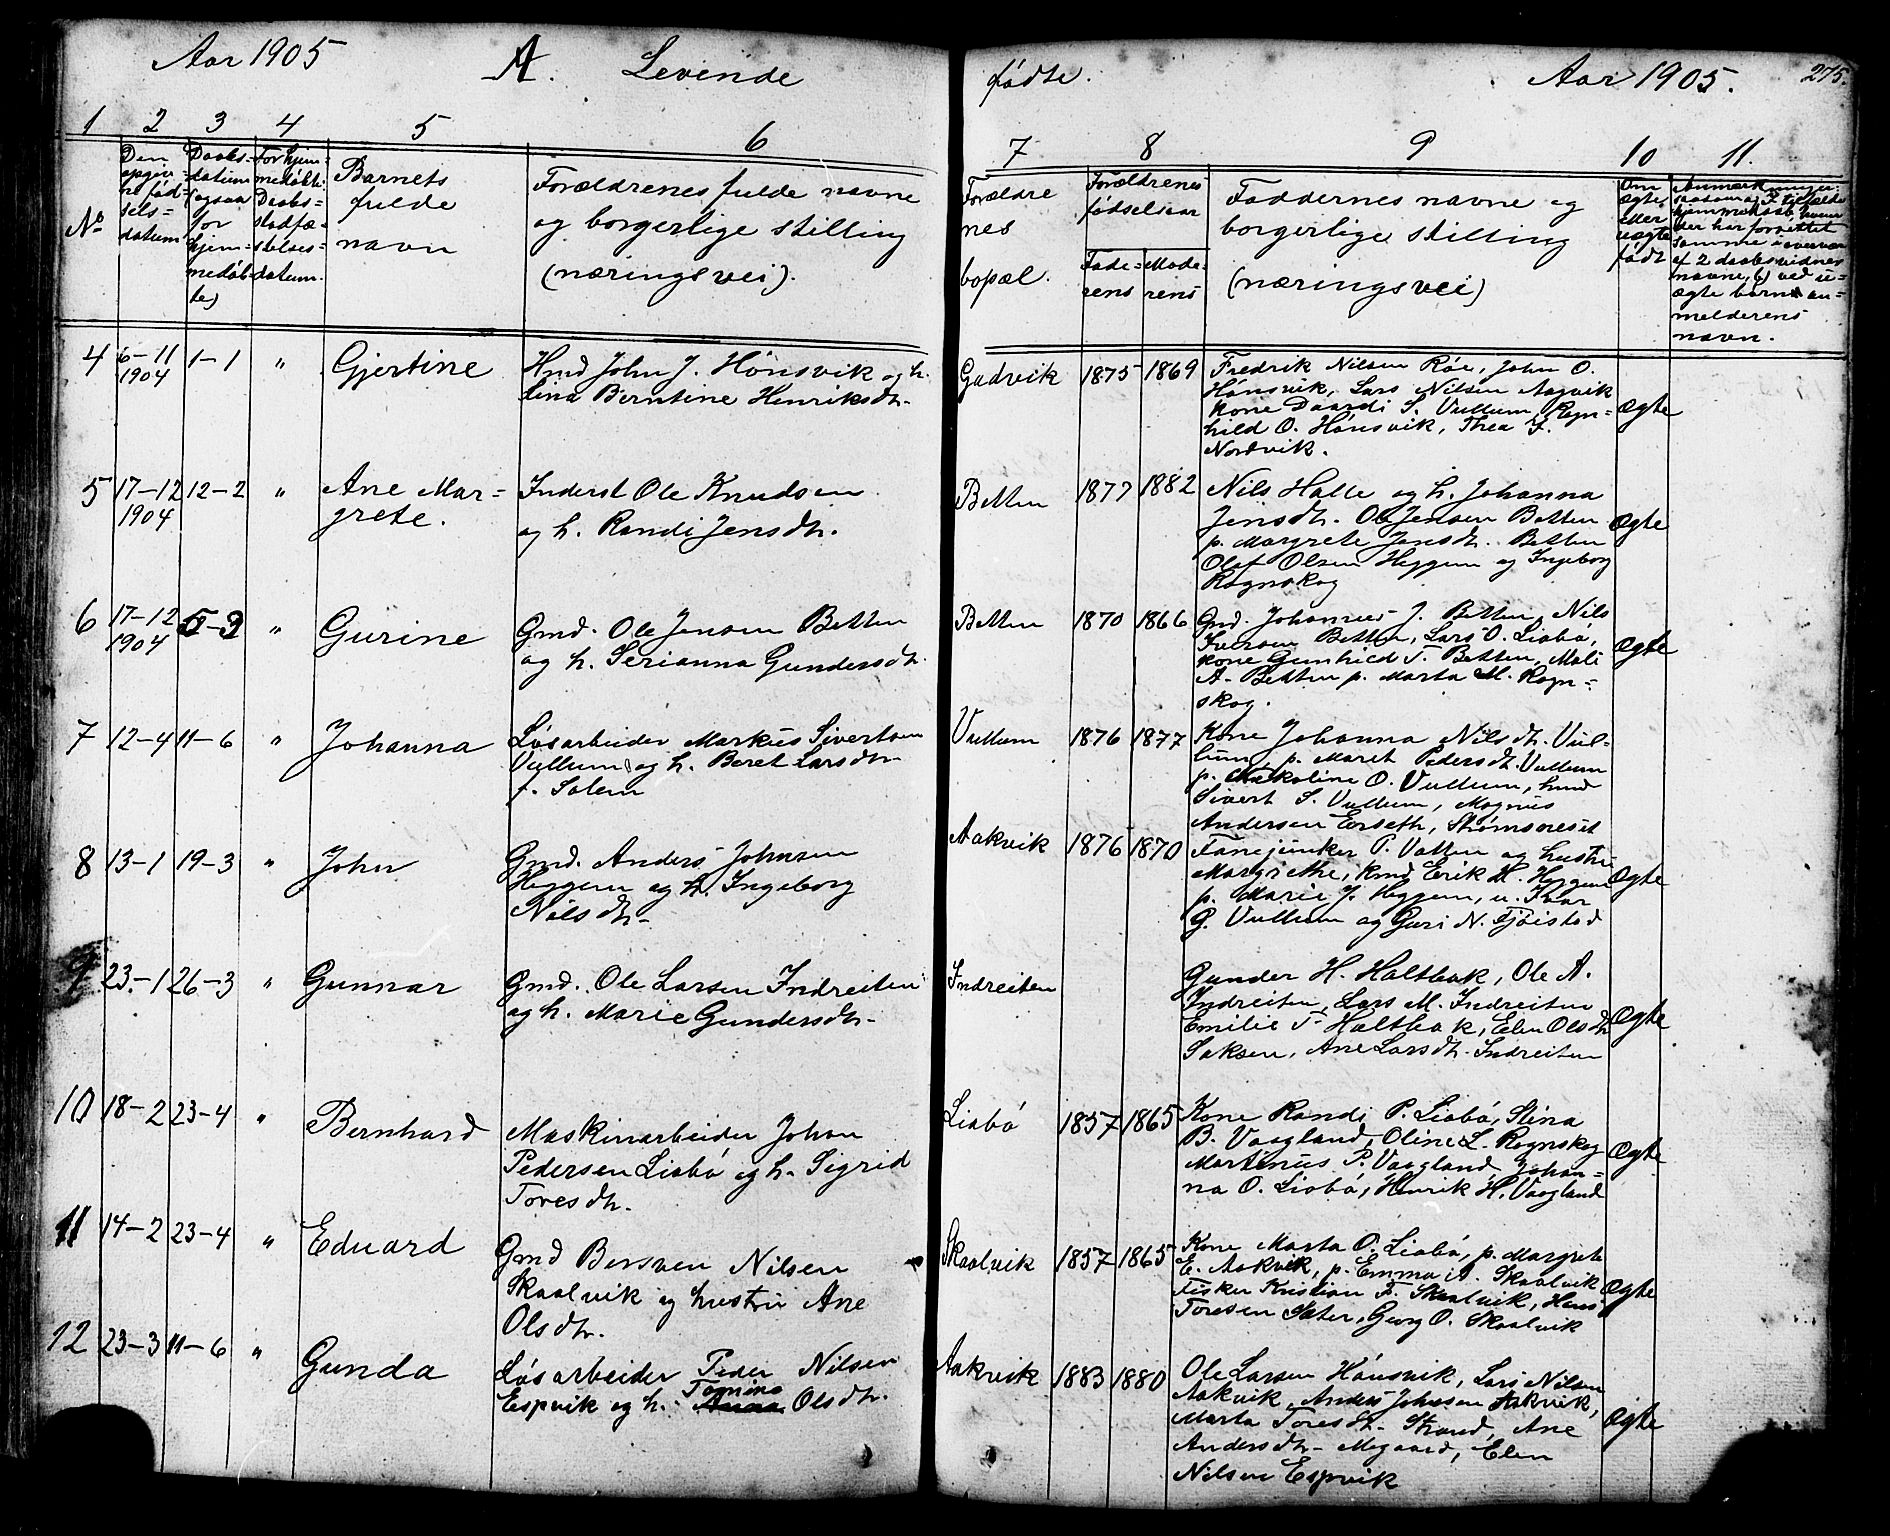 Aar 1905 A. Levende fødte. Aar 1905. 275.
1 2 3 4 5 6 7 8 9 10 11.
No
Den
opgiv-
ne fød-
sels-
datum
Daabs-
datum
(ogsaa
for
hjem-
medøb-
te)
For hjem-
medøbte:
Daabs-
stadfæ-
stelses-
datum.
Barnets
fulde
navn
Forældrenes fulde navne
og borgerlige stilling
(næringsvei).
Forældre
nes
bopæl.
Forældrenes
fødselsaar
Fade-
rens
Mode-
rens
Faddernes navne og
borgerlige stilling
(næringsvei)
Om
ægte
eller
uægte
født
Anmerkninger
navne, b) ved u-
ægte barns an-
melderens
navn.
4 6-11 1-1 " Gjertine
1904
Hmd John J. Hönsvik og h.
Lina Berntine Henriksdtr.
Gudvik 1875 1869
Fredrik Nilsen Röe, John O.
Hönsvik, Lars Nilsen Aagvik
Kone Daardi S. Vullum, Ragn-
hild O. Hönsvik, Thea F.
Nordvik.
Ægte
5 17-12 12-2 " Ane Mar-
1904 grete.
Inderst Ole Knudsen
og h. Randi Jensdtr.
Betten 1877 1882
Nils Halle og h. Johanna
Jensdtr. Ole Jensen Betten
p. Margrete Jensdtr. Betten
Olaf Olsen Heggem og Ingeborg
Rognskog
Ægte
6 17-12 5-3 " Gurine
1904
Gmd. Ole Jensen Betten
og h. Serianna Gundersdtr.
Betten 1870 1866
Gmd. Johannes J. Betten, Nils
Iversen Betten, Lars O. Liabø,
kone Gunhild T. Betten, Mali
A. Betten p. Marta M. Rogn-
skog.
Ægte
7 12-4 11-6 " Johanna
Løsarbeider Markus Sivertsen
Vullum og h. Beret Larsdtr.
f. Solem
Vullum 1876 1877
Kone Johanna Nilsdtr. Vul-
lum, p. Marit Pedersdtr. Vullum
p. O. Vullum, hmd
Sivert S. Vullum, Magnus
Andersen Eerseth, Strømsöreset
8 13-1 19-3 " John
Gmd. Anders Johnsen
Heggem og h. Ingeborg
Nilsdtr.
Aakvik 1876 1870
Fanejunker P. Vatten og hustru
Margrethe, Kmd Erik H. Heggem
p. Marie J. Heggem, u. Ivar
G. Vullum og Guri N. Fjöistad
Ægte
9 23-1 26-3 " Gunnar
Gmd. Ole Larsen Indreiten
og h. Marie Gundersdtr.
Indreiten
Gunder H. Holtbak, Ole A.
Indreiten, Lars M. Indreiten
Emilie T. Holtbak, Elen Olsdtr
Saksen, Ane Larsdtr. Indreiten
Ægte
10 18-2 23-4 " Bernhard
Maskinarbeider Johan
Pedersen Liabö og h. Sigrid
Toresdtr.
Liabö 1857 1865
Kone Randi P. Liabö, Stina
B. Vaagland, Oline L. Rognskog
Martinus P. Vaagland, Johan-
na O. Liabö, Henrik H. Vaagland
Ægte
11 14-2 23-4 " Eduard
Gmd Bersven Nilsen
Skaalvik og hustru Ane
Olsdtr.
Skaalvik 1857 1865
Kone Marta O. Liabö, p. Margrete
E. Aakvik, p. Emma A. Skaalvik
Fisker Kristian F. Skaalvik, Hans
Toresen Sæter, Georg O. Skaalvik
Ægte
12 23-3 11-6 " Gunda
Løsarbeider Peder Nilsen
Tomine
Espvik og h. Anna Olsdtr.
Aakvik 1883 1880
Ole Larsen Hönsvik, Lars Nilsen
Aakvik, Anders Johnsen Aakvik,
Marta Toresdtr. Strand, Ane
Andersdtr. Megaard, Elen
Nilsen Espvik
Ægte